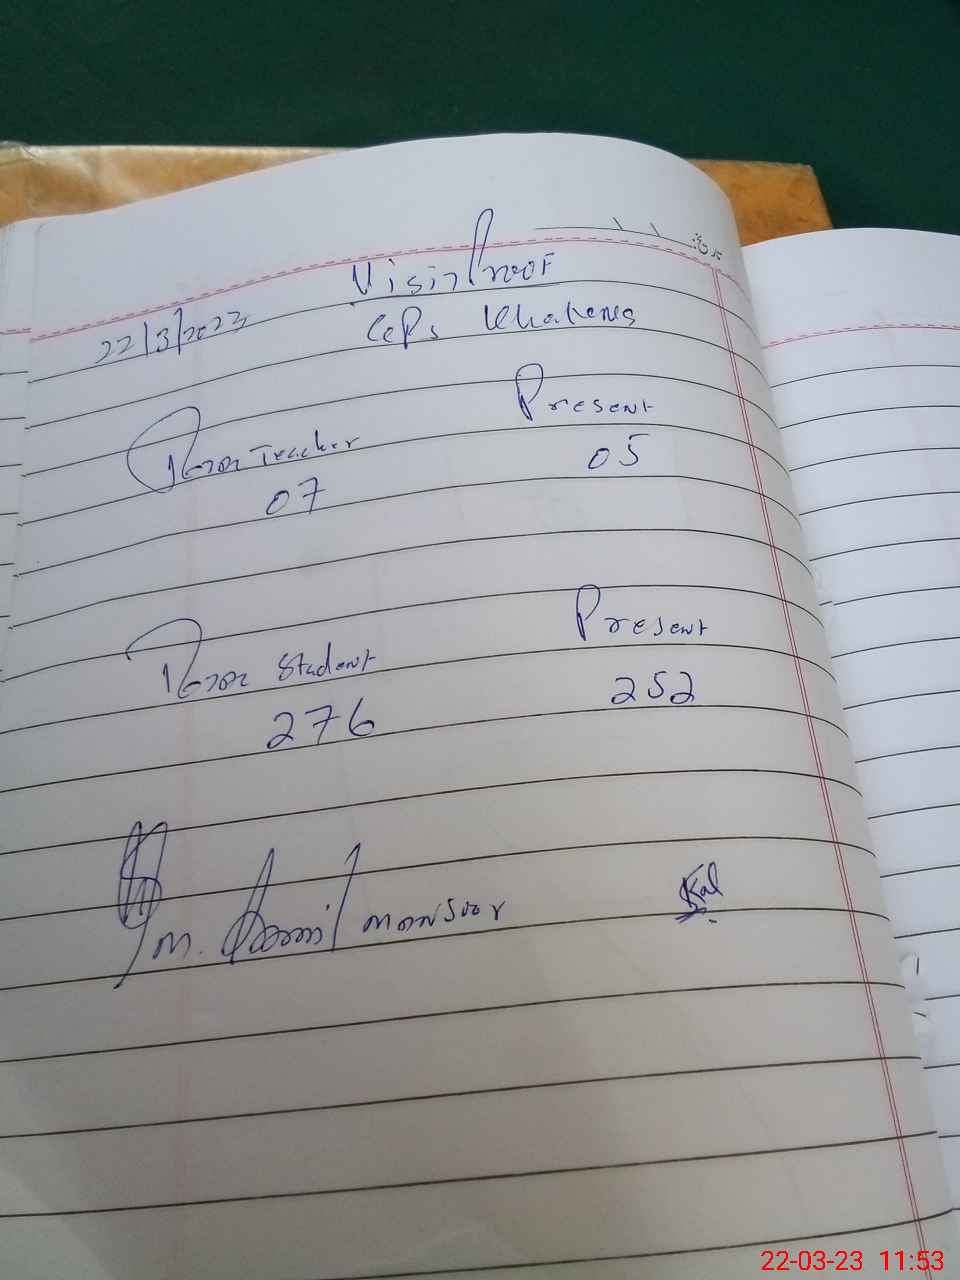 تاریخ:
Visit Proof
22/3/2023
GGPS
Teacher Present
07 05
Student Present
276 252
M. Jamil mansoor
22-03-23 11:53